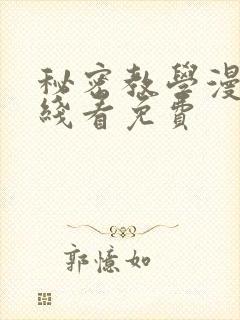 秘密教學漫
綫看免費
郭憶如